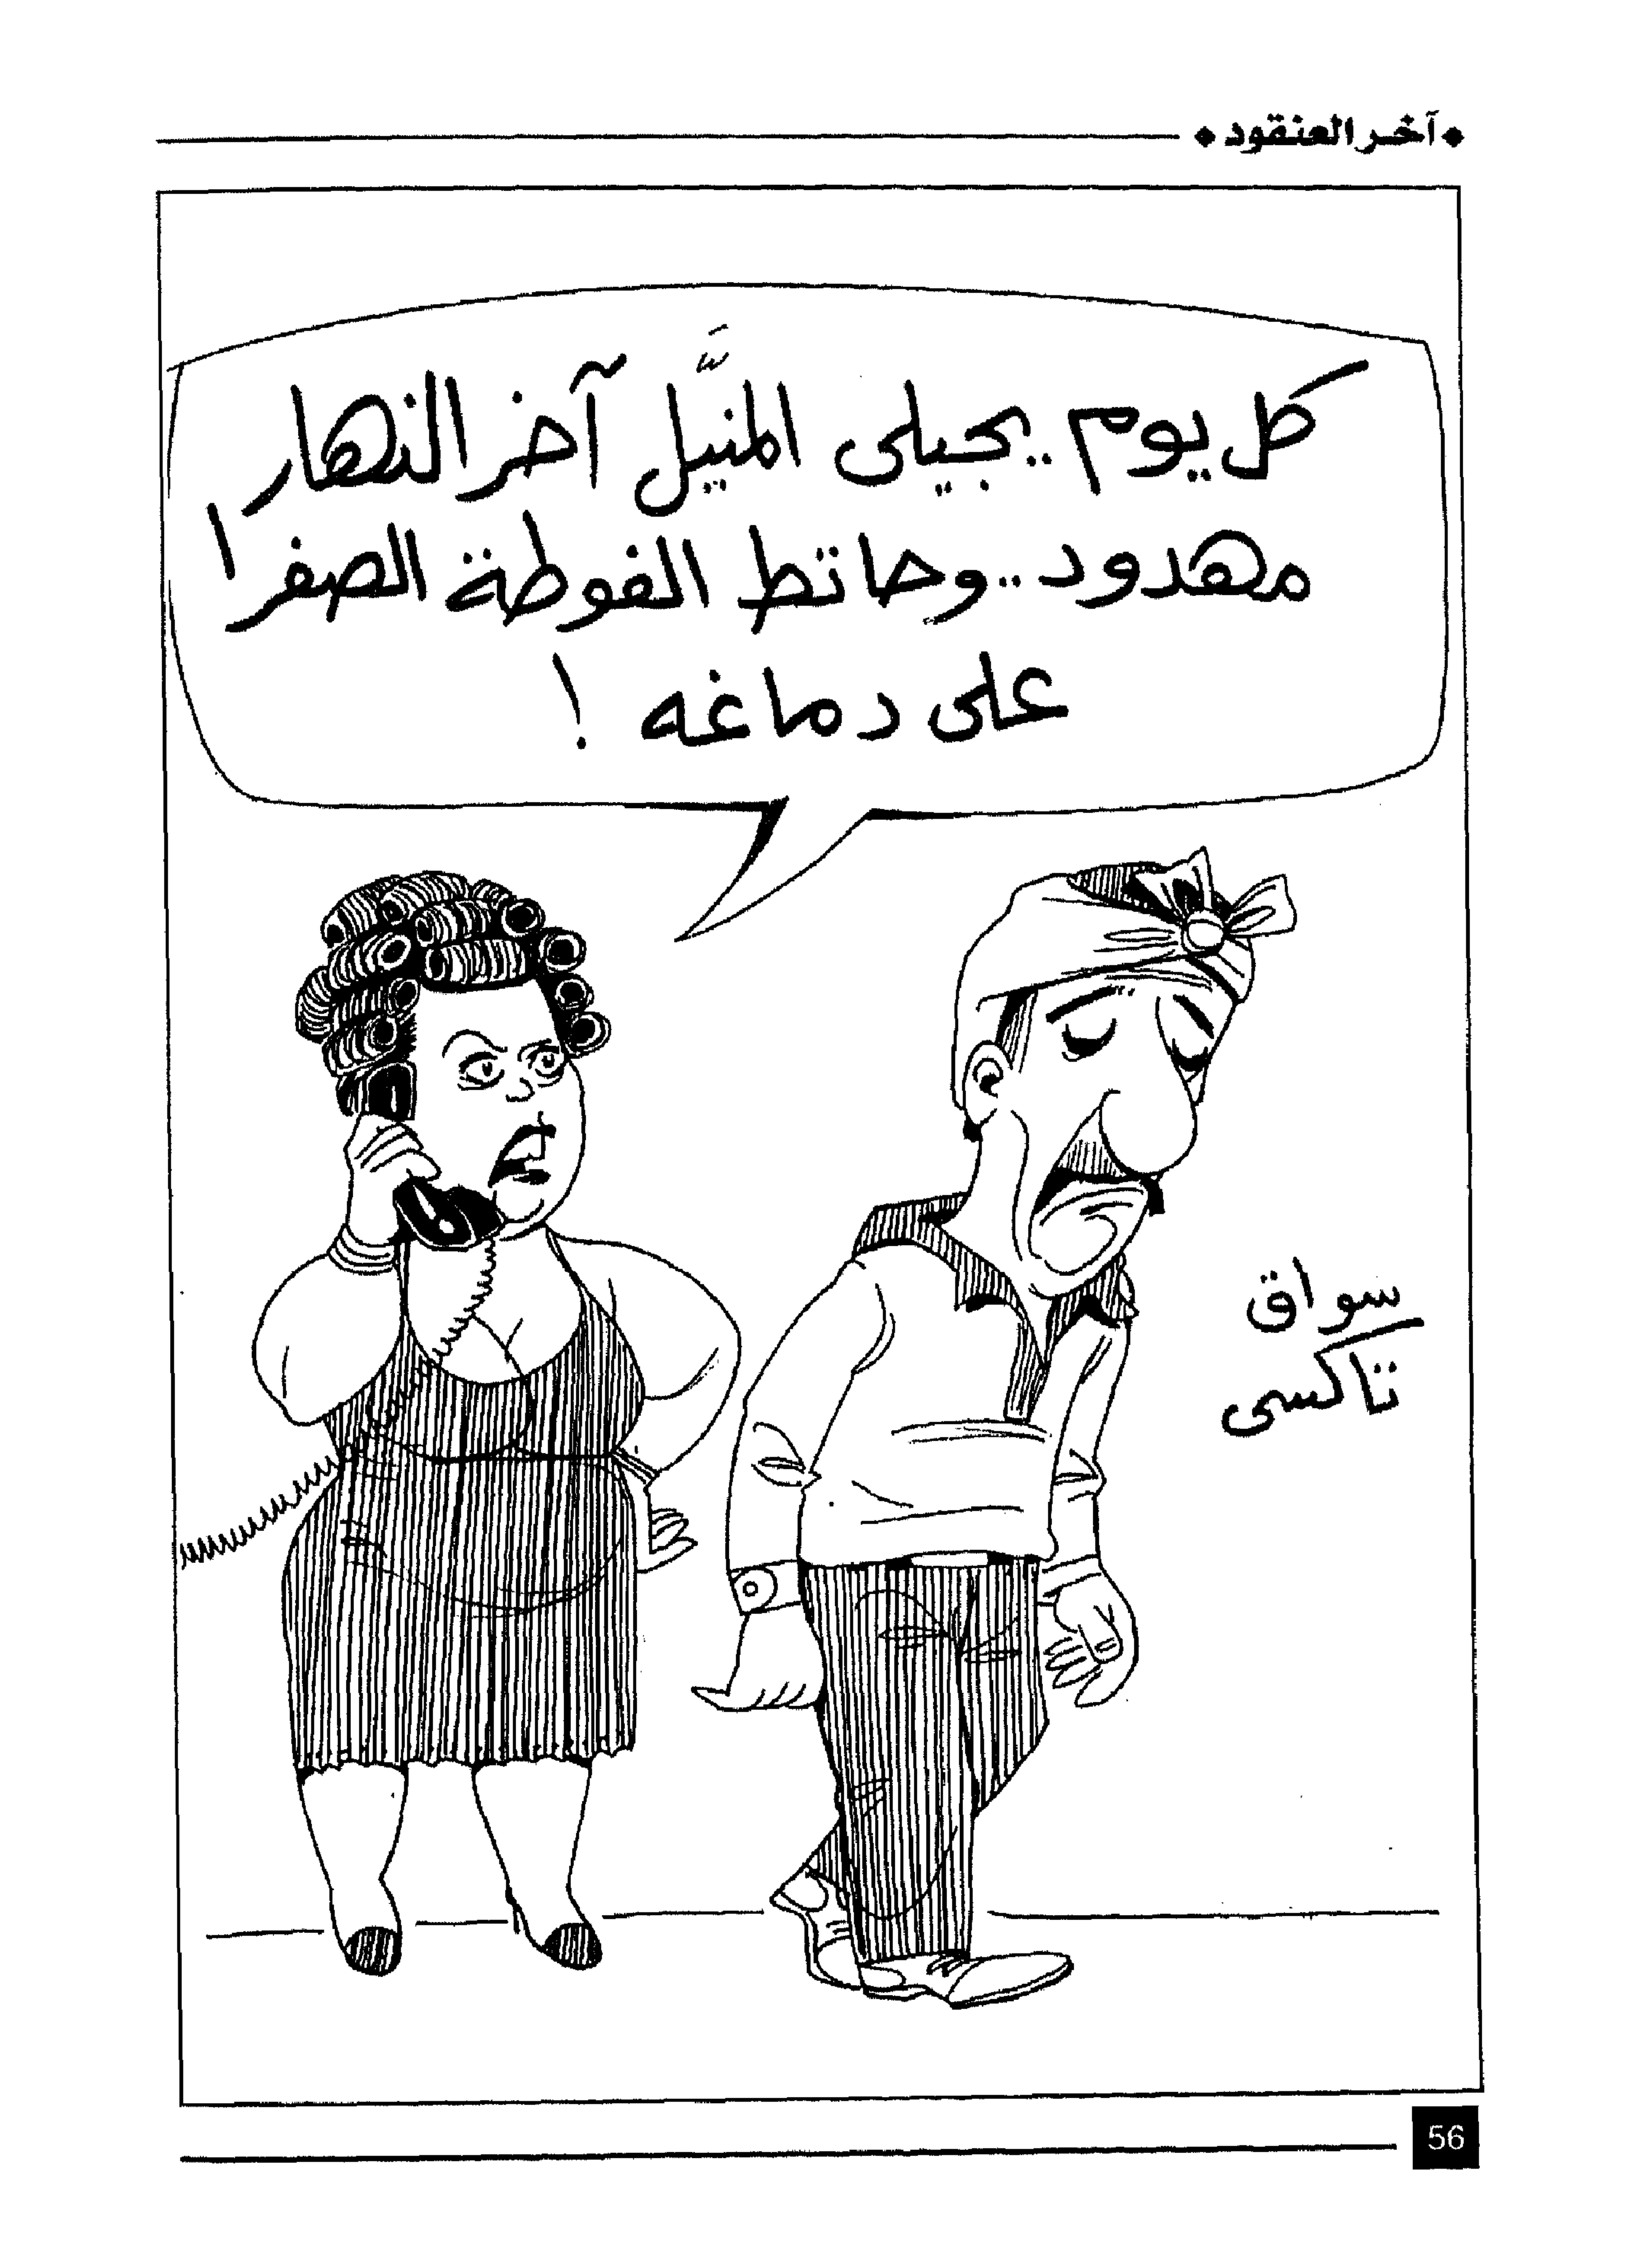 آخر العنقود
كل يوم .. يجيلى المنيَّل آخر النهار
مهدود .. وحاتط الفوطة الصفرا
على دماغه !
سواق
تاكسى
56